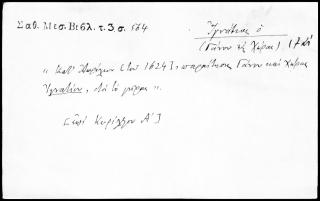 Σαθ. Μεσ. Βιβλ. τ. 3 σ. 564
Ἰγνάτιος ὁ
(Γάνου καὶ Χώρας) (17 αἰ
« Κατ' Ἀπρίλιον [τοῦ 1624], παραίτησις Γάνου καὶ Χώρας
Ἰγνατίου, διὰ τὸ γῆρας ».
[ἐπὶ Κυρίλλου Α']